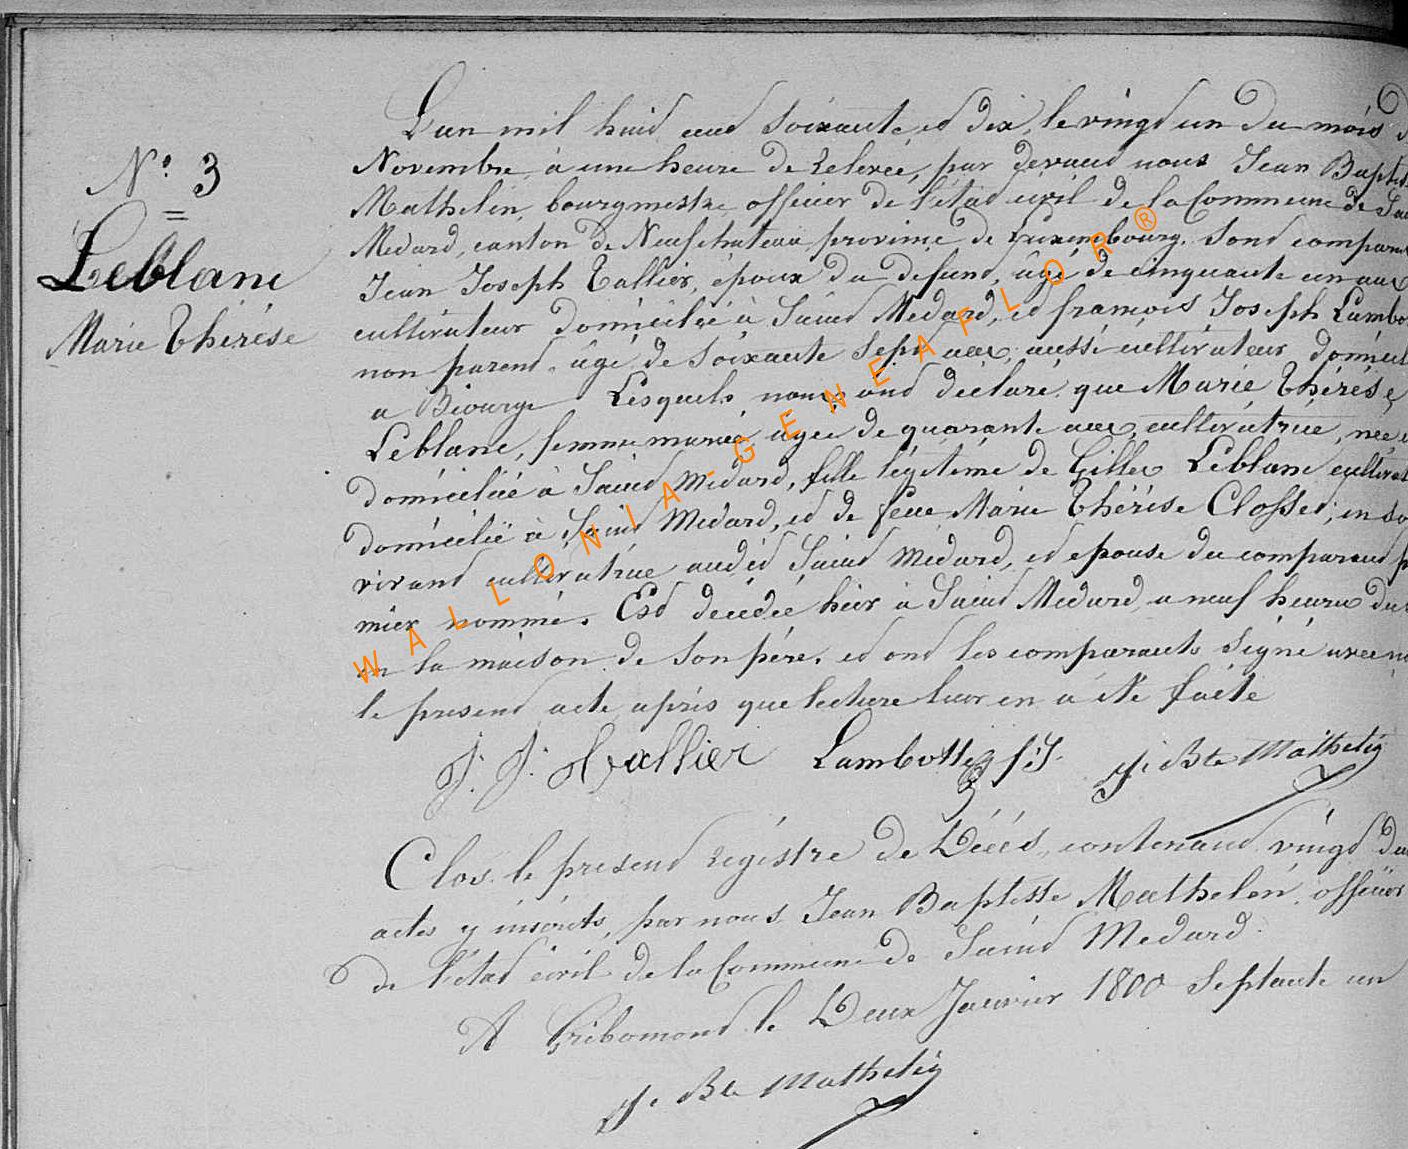 N° 3
Leblanc
Marie Thérèse
L'an mil huit cent soixante et dix, le vingt un du mois
Novembre, à une heure de relevée, par devant nous Jean Baptis
Mathelin, bourgmestre officier de l'état civil de la Commune de Sai
Medard, canton de Neufchateau province de Luxembourg. Sont comparu
Jean Joseph Tallier, époux du défunt, âgé de cinquante un ans
cultivateur domicilié à Saint Médard, et françois Joseph Lambo
non parent âgé de soixante sept ans, aussi cultivateur domicil
a Biourge Lesquels nous ont déclaré que Marie Thérèse
Leblanc, femme mariée, agée de quarante ans, cultivatrice, née
domiciliée à Saint Médard, fille légitime de Gilles Leblanc cultivat
domicilié à Saint Médard, et de feue Marie Thérèse Closset, en so
vivant cultivatrice audit Saint Médard, et epouse du comparant p
mier nommé. Est décédée hier à Saint Medard, a neuf heures du
en la maison de son père. et ont les comparants signé avec no
le present acte après que lecture leur en a été faite
J. J. Tallier Lambotte f.J. J. Bte Mathelin
Clos le present régistre de Décés, contenant vingt
actes y inscrits, par nous Jean Baptiste Mathelin, officier
de l'état civil de la Commune de Saint Medard.
A Gribomont le Deux Janvier 1800 Septante un
J. Bte Mathelin
WALLONIA-GENEAFLOR®